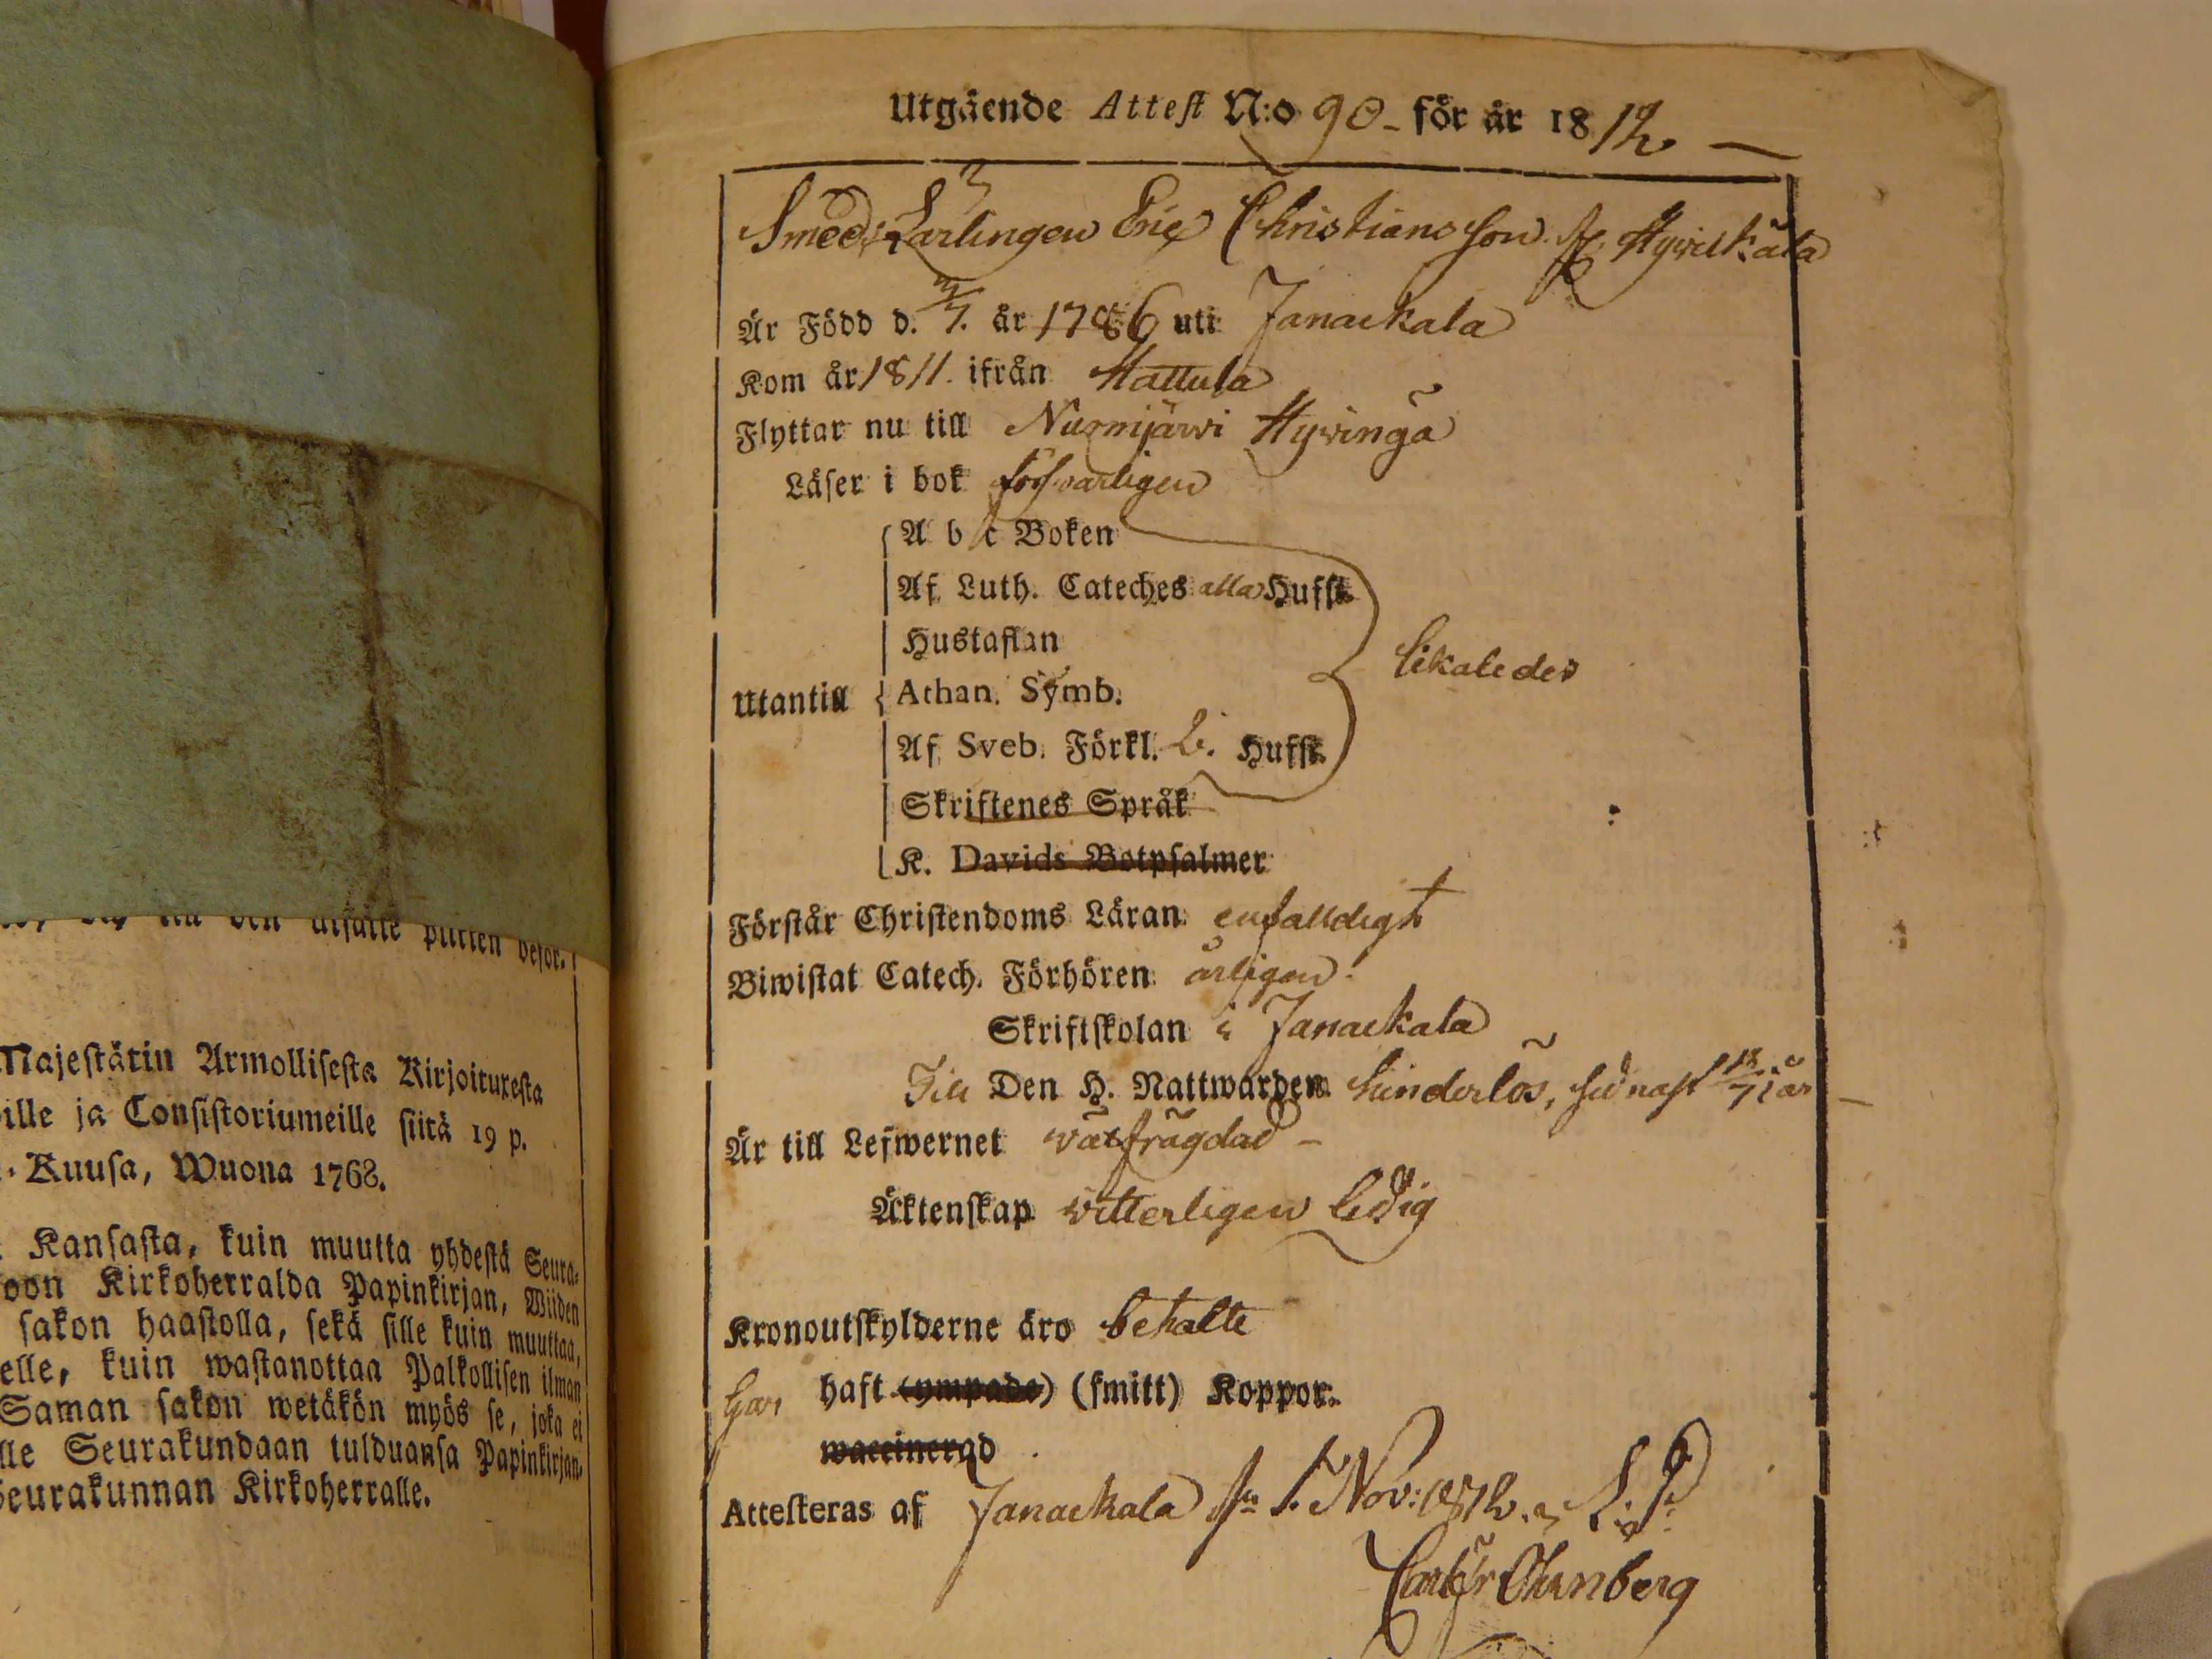 Utgående Attest N:o 90 för år 1812
Smeds Lärlingen Eric Christiansson fr. Hywikälä
Är Född d. 7. år 1786 uti Janackala
Kom år 1811. ifrån Hattula
Flyttar nu till Nurmijärwi Hywingä
Läser i bok försvarligen
A b c Boken
Af Luth. Cateches alla Hufst.
Hustaflan
likaledes
Utantill Athan. Symb.
Af Sveb. Förkl. Hufst.
Skriftenes Språk
K. Davids Botpsalmer
Förstår Christendoms Läran enfalldigt
Biwistat Catech. Förhören årligen.
Skriftskolan i Janackala
Till Den H. Nattwarden hinderlös, sednast i år
Är till Lefwernet wälfrägdad
Äktenskap witterligen ledig
Kronoutskylderne äro betalte
Har haft (ympade) (smitt) Koppor.
waccinerad
Attesteras af Janackala 1. Nov: 1812.
Ohrnberg
den utsatte putten befor.
Majestätin Armollisesta Kirjoituxesta
ille ja Consistoriumeille siitä 19 p.
Kuusa, Wuona 1768.
Kansasta, kuin muutta yhdestä Seura-
oon Kirkoherralda Papinkirjan, Wiiden
sakon haastolla, sekä sille kuin muuttaa,
elle, kuin wastanottaa Palkollisen ilman
Saman sakon wetäkön myös se, joka ei
lle Seurakundaan tulduansa Papinkirjan-
Seurakunnan Kirkoherralle.